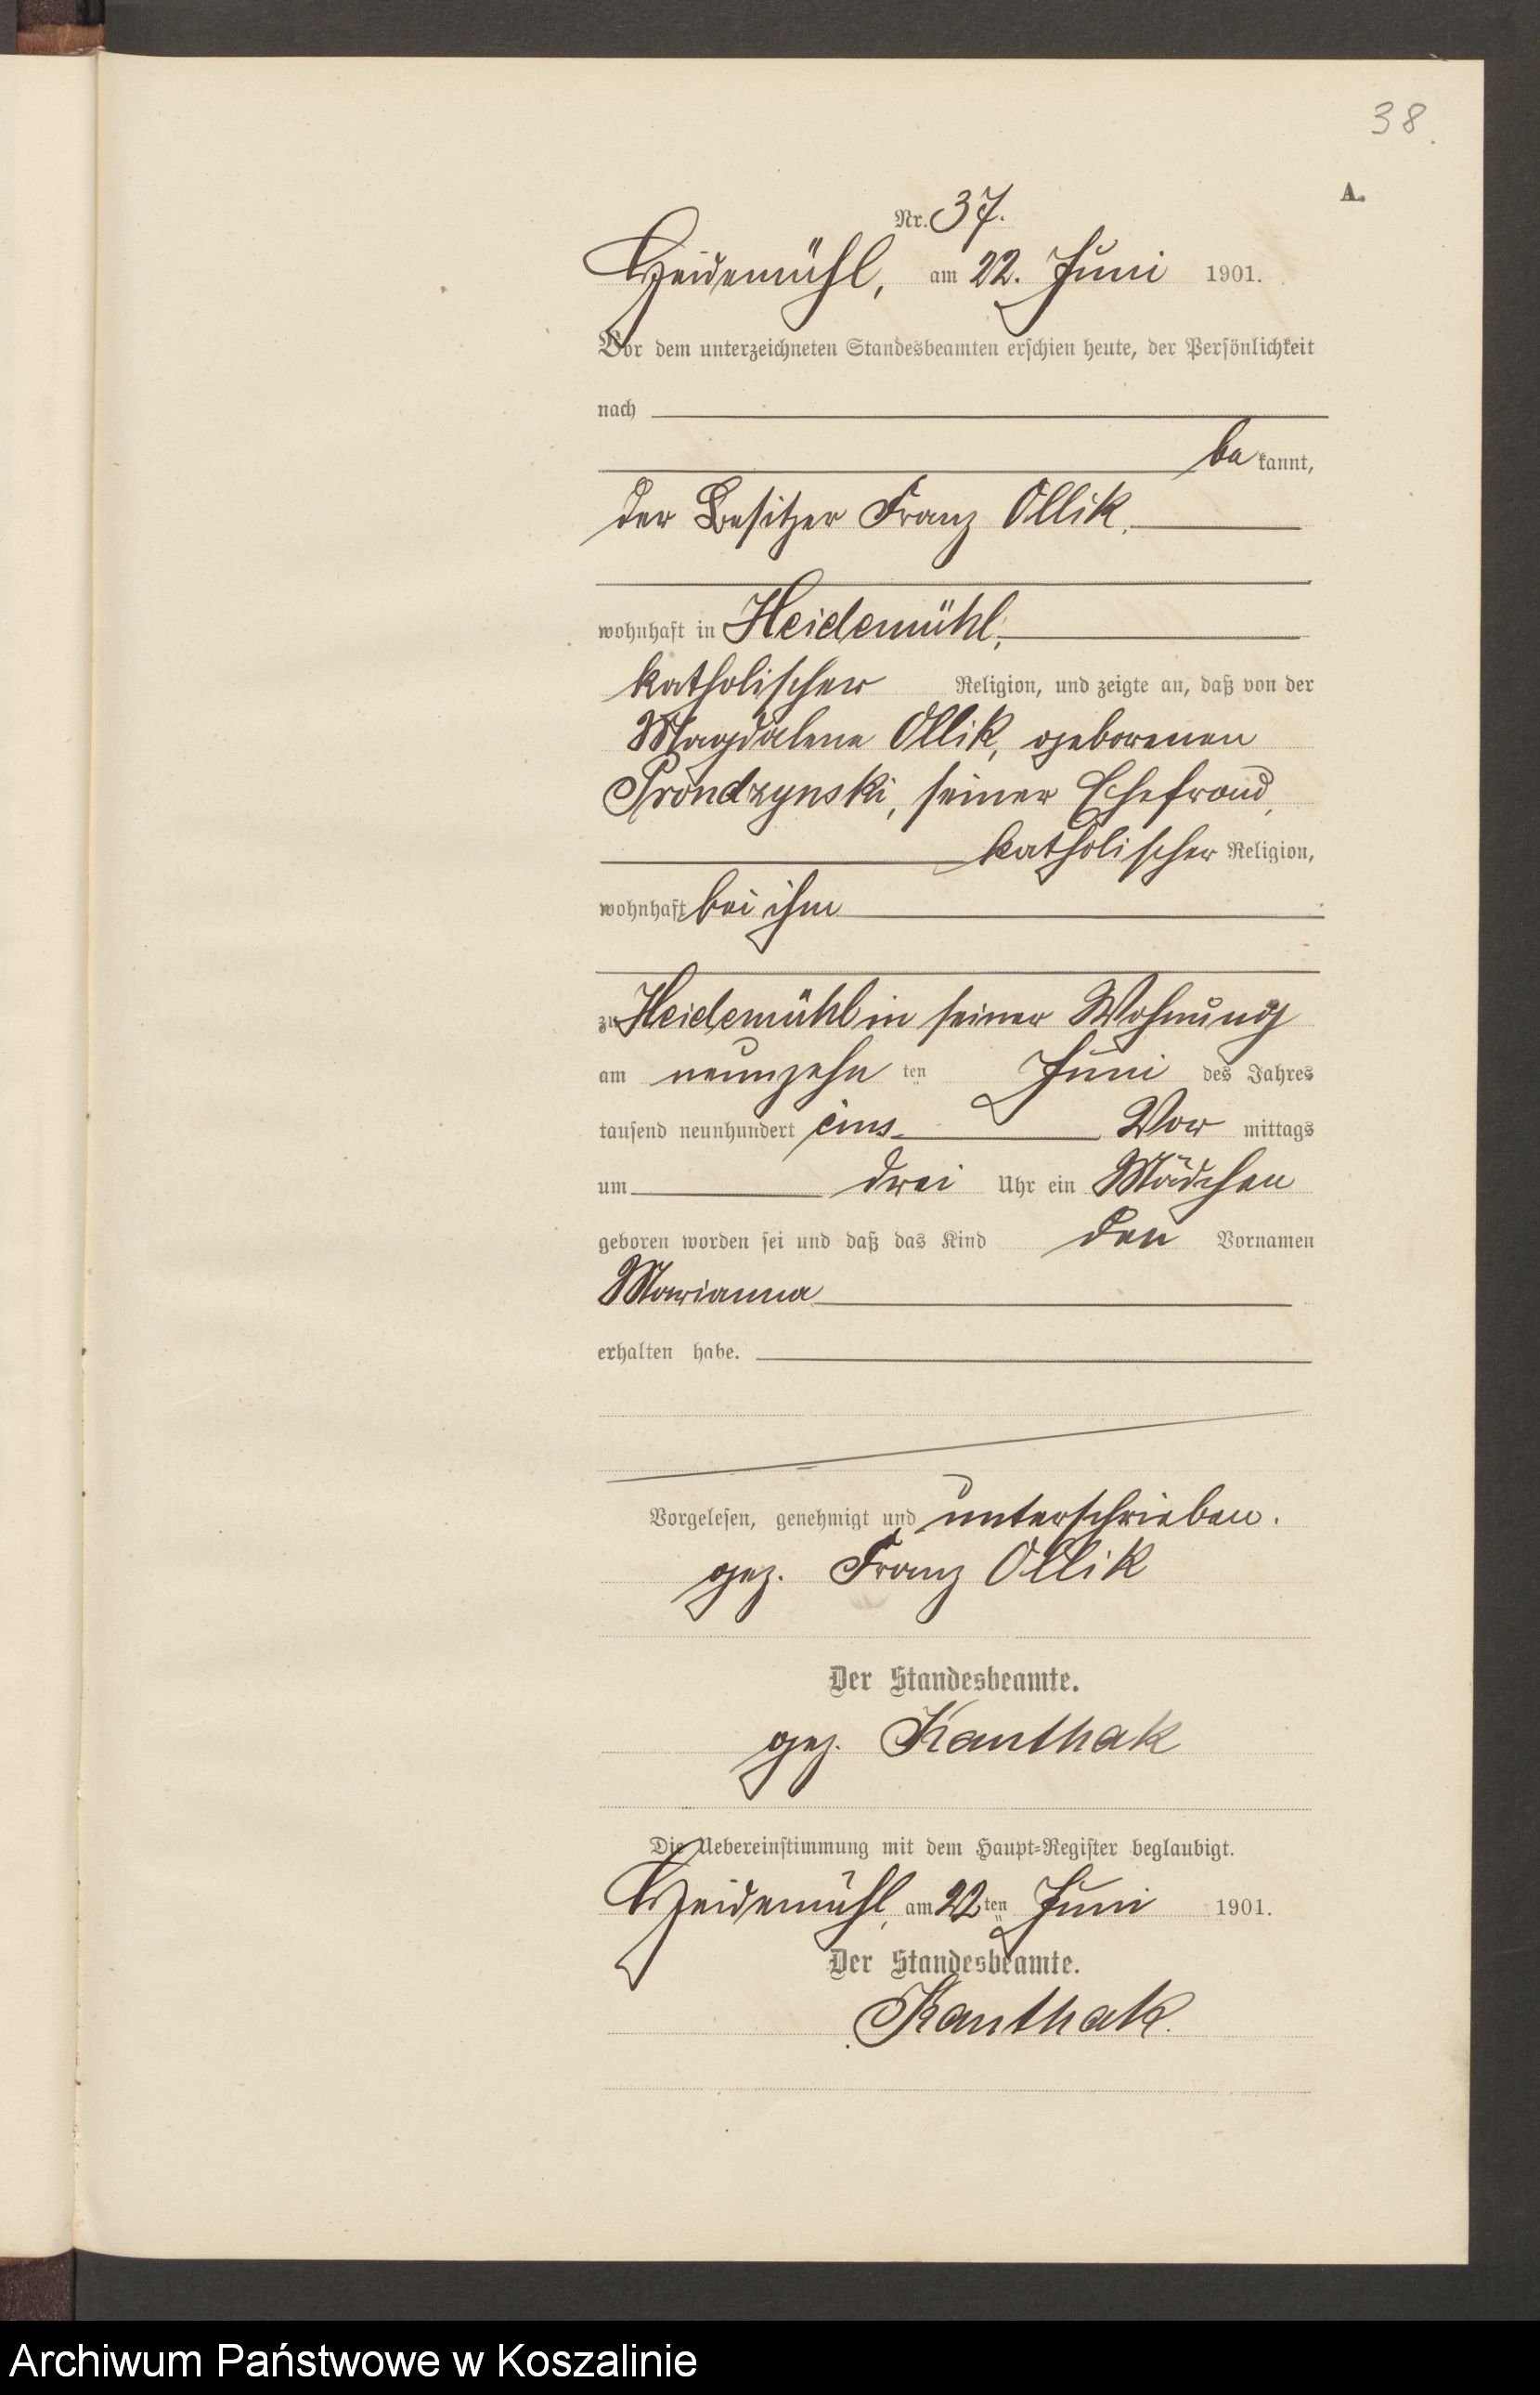 38.
A.
Nr. 37.
Heidemühl, am 22. Juni 1901.
Vor dem unterzeichneten Standesbeamten erschien heute, der Persönlichkeit
nach
bekannt,
der Besitzer Franz Ollik,
wohnhaft in Heidemühl,
katholischer Religion, und zeigte an, daß von der
Magdalena Ollik, geborenen
Prondzynski, seiner Ehefrau,
katholischer Religion,
wohnhaft bei ihm
zu Heidemühl in seiner Wohnung
am neunzehnten Juni des Jahres
tausend neunhundert eins Vormittags
um drei Uhr ein Mädchen
geboren worden sei und daß das Kind den Vornamen
Marianna
erhalten habe.
Vorgelesen, genehmigt und unterschrieben.
gez. Franz Ollik
Der Standesbeamte.
gez. Kanthak
Die Uebereinstimmung mit dem Haupt-Register beglaubigt.
Heidemühl, am 22ten Juni 1901.
Der Standesbeamte.
Kanthak.
Archiwum Państwowe w Koszalinie